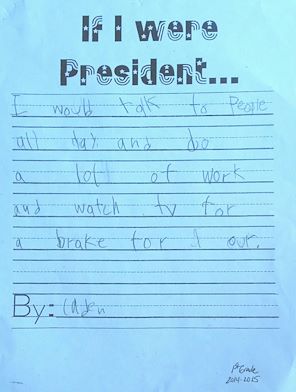 If I were
President...
I would talk to People
all day and do
a lot of work
and watch tv for
a brake for 1 our.
By: Caden
1st Grade
2014-2015